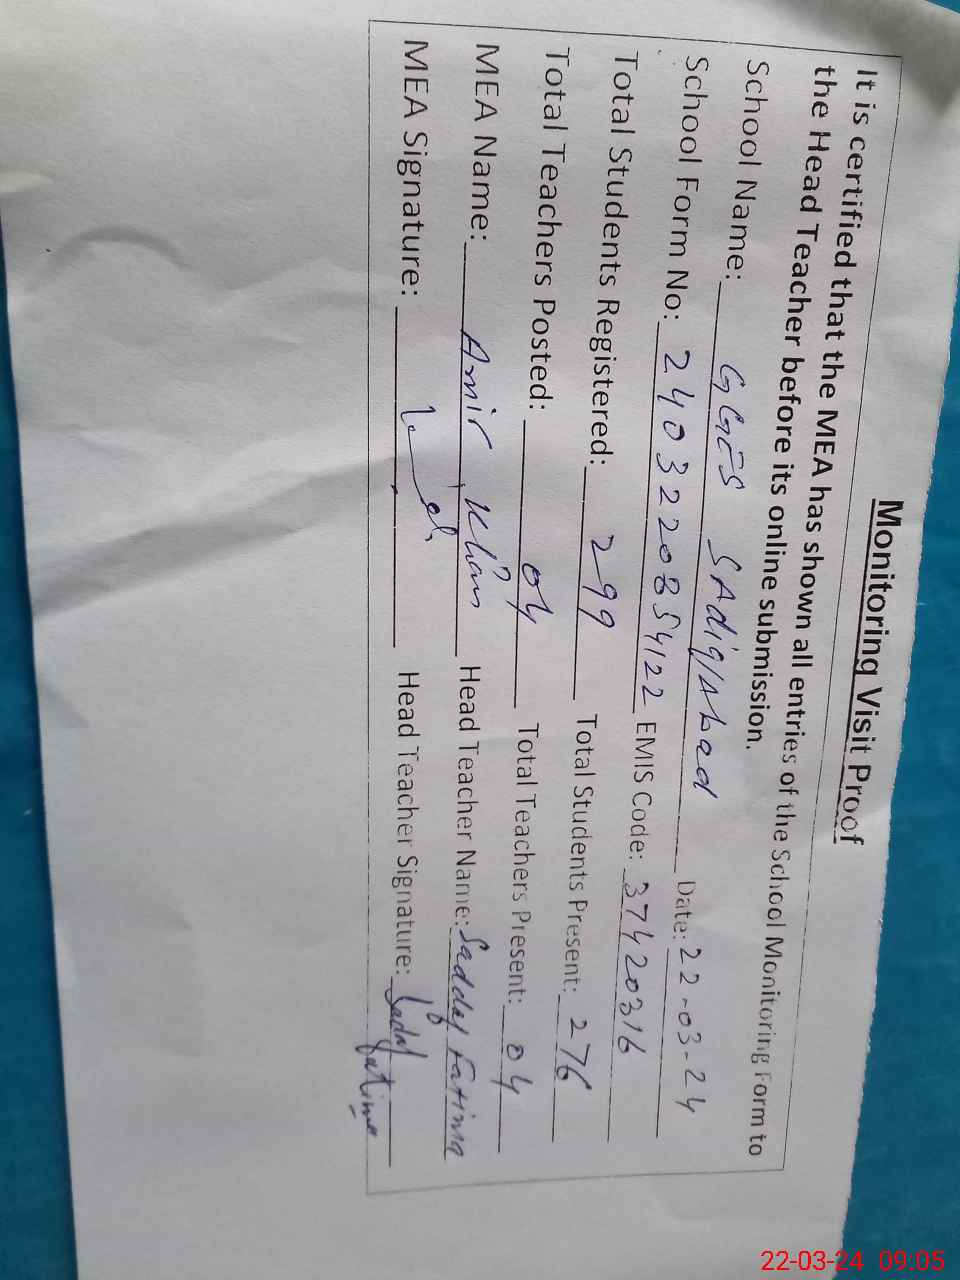 Monitoring Visit Proof
It is certified that the MEA has shown all entries of the School Monitoring Form to
the Head Teacher before its online submission.
School Name: GGES SAdiq/Abad Date: 22-03-24
School Form No: 2403220854122 EMIS Code: 37420316
Total Students Registered: 299 Total Students Present: 276
Total Teachers Posted: 04 Total Teachers Present: 04
MEA Name: Amir Khan Head Teacher Name: Saddaf Fatima
MEA Signature: Head Teacher Signature: Sadaf
Fatima
22-03-24 09:05